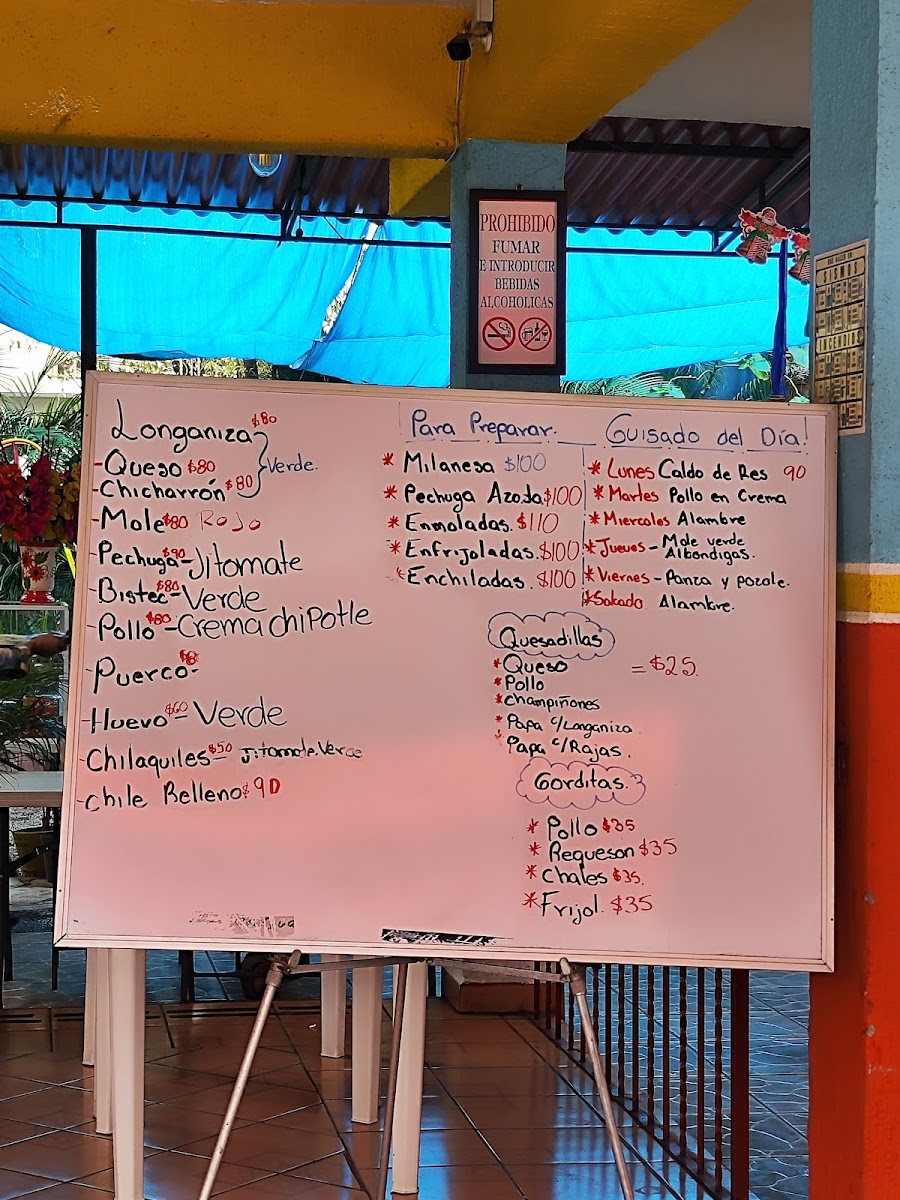 PROHIBIDO
FUMAR
E INTRODUCIR
BEBIDAS
ALCOHOLICAS
Longaniza $80
-Queso $80
-Chicharrón $80
Verde.
-Mole $80 Rojo
-Pechuga $90 -Jitomate
-Bistec $80 -Verde
-Pollo $80 -Crema chiPotle
-Puerco $8 -
-Huevo $60 -Verde
-Chilaquiles $50 - Jitomate.Verde
-Chile Relleno $90
Para Preparar.
* Milanesa $100
* Pechuga Azada $100
* Enmoladas. $110
* Enfrijoladas. $100
* Enchiladas. $100
Guisado del Día!
* Lunes Caldo de Res 90
* Martes Pollo en Crema
* Miercoles Alambre
* Jueves - Mole verde
Albondigas.
* Viernes - Panza y pozole.
* Sabado Alambre.
Quesadillas
* Queso = $25.
* Pollo
* Champiñones
* Papa c/Longaniza
* Papa c/Rajas.
Gorditas.
* Pollo $35
* Requeson $35
* Chales $35.
* Frijol. $35
SISMOS
INCENDIO